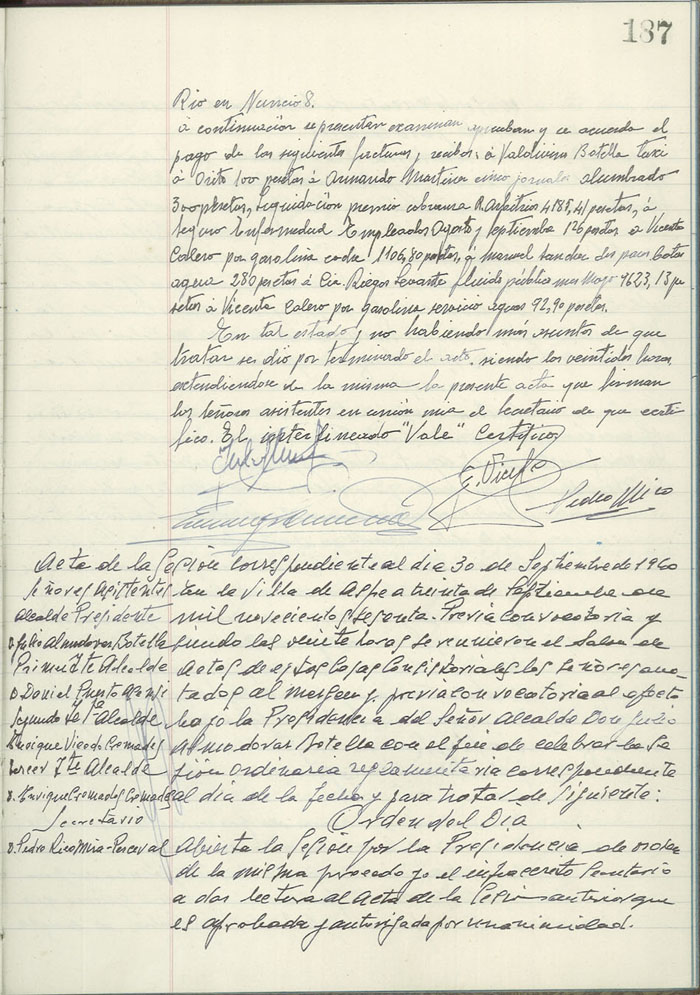 187
Rio en Nuncio 8.
á continuación se presentan examinan aprueban y se acuerda el
pago de las siguientes facturas y recibos: á Valdivina Botella taxi
á Orito 100 pesetas á Armando Martinez cinco jornales alumbrado
300 pesetas, Liquidación premio cobranza R. Arbitrios 4185,41 pesetas, á
Seguro Enfermedad Empleados Agosto y Septiembre 126 pesetas a Vicente
Calero por gasolina coche 1106,80 pesetas, á Manuel Sanchez dos pares botas
agua 280 pesetas á Cia. Riegos Levante fluido público mes Mayo 9623,13 pe
setas á Vicente Calero por gasolina servicio aguas 92,90 pesetas.
En tal estado y no habiendo más asuntos de que
tratar se dio por terminado el acto siendo las veintidos horas
extendiendose de la misma la presente acta que firman
los señores asistentes en unión mia el Secretario de que certi
fico. El interlineado "Vale" Certifico
Pedro Rico
Acta de la Sesión correspondiente al dia 30 de Septiembre de 1960
Señores Asistentes
Alcalde Presidente
D. Julio Almodovar Botella
Primer Tte Alcalde
D. Daniel
Segundo Tte Alcalde
Enrique Vicedo Cremades
Tercer Tte Alcalde
D. Enrique Cremades Cremades
Secretario
D. Pedro Rico Mira-Perceval
En la Villa de Aspe a treinta de Septiembre de
mil novecientos sesenta. Previa convocatoria y
siendo las veinte horas se reunieron el Salon de
Actos de estas Casas Consistoriales los Señores ano
tados al margen y previa convocatoria al efecto
bajo la Presidencia del Señor Alcalde Don Julio
Almodovar Botella con el fin de celebrar la Se
sión ordinaria reglamentaria correspondiente
al dia de la fecha y para tratar de siguiente:
Orden del Dia
Abierta la Sesión por la Presidencia de orden
de la misma procedo yo el infrascrito Secretario
a dar lectura al Acta de la Sesión anterior que
es aprobada y autorizada por unanimidad.